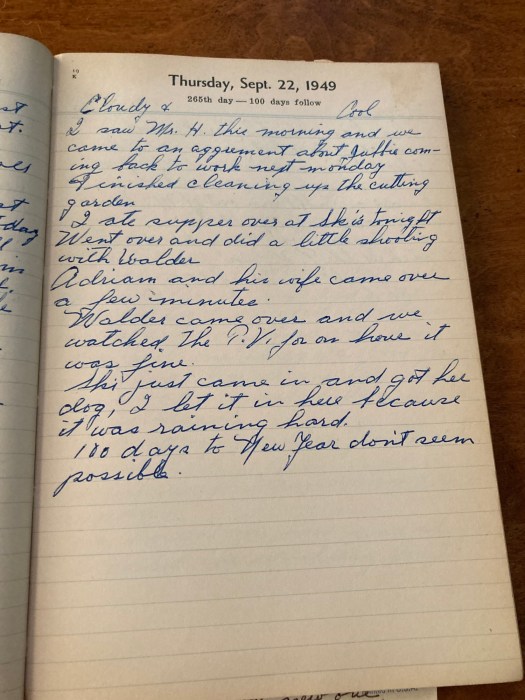 Thursday, Sept. 22, 1949
265th day — 100 days follow
Cloudy & Cool
I saw Mr. H. this morning and we
came to an aggrument about Juffie com-
ing back to work next monday
Finished cleaning up the cutting
garden
I ate supper over at Ski's tonight
Went over and did a little shooting
with Walder
Adriam and his wife came over
a few minutes.
Walder came over and we
watched the T.V. for on houe it
was fine.
Ski just came in and got her
dog, I let it in here because
it was raining hard.
100 days to New Year don't seem
possible.